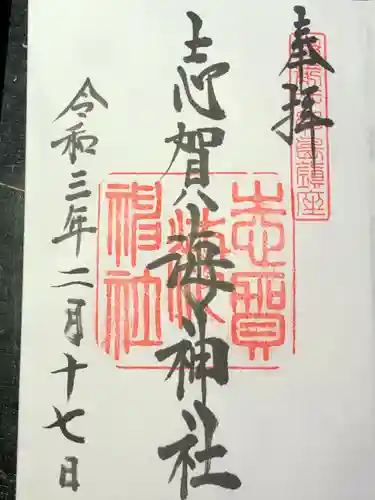 奉拝
志賀海神社
令和三年二月十七日
志賀
海
神社